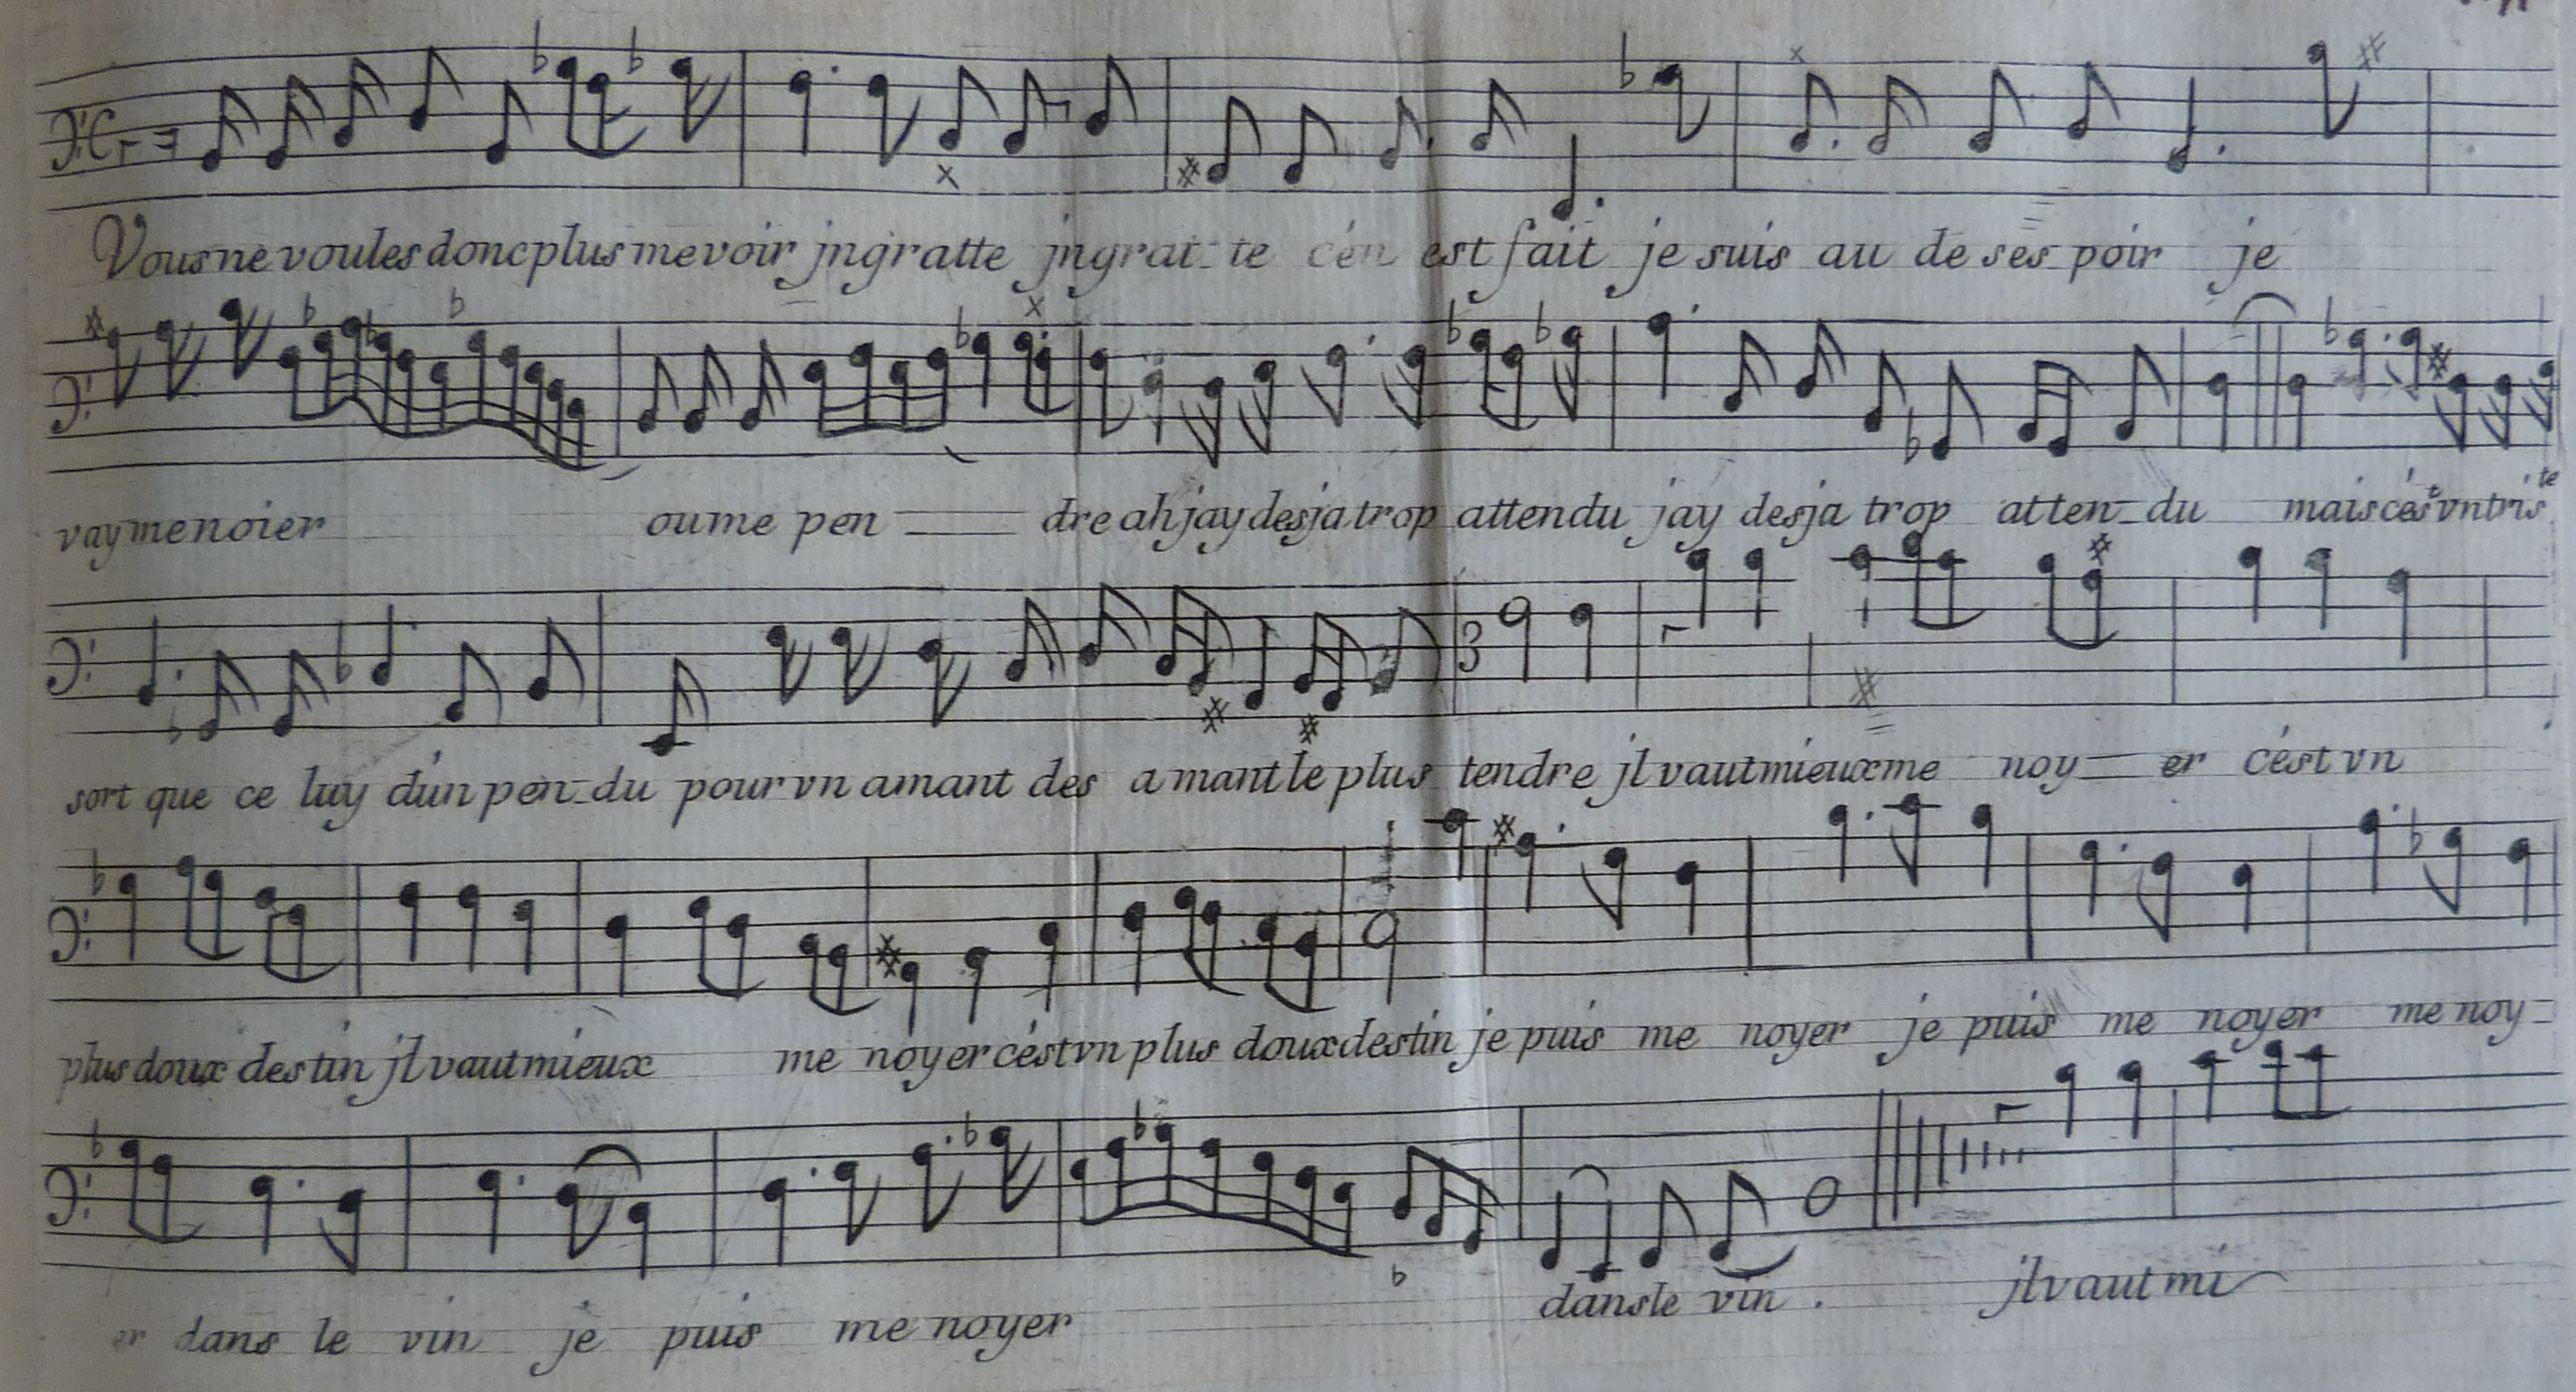 Vous ne voules donc plus me voir jngratte jngrat-te c'en est fait je suis au de ses poir je
vay me noier ou me pen dre ah jay desja trop attendu jay desja trop atten-du mais c'est vn tris te
sort que ce luy d'un pen-du pour vn amant des a mant le plus tendre jl vaut mieux me noy er c'est vn
plus doux destin jl vaut mieux me noyer c'est vn plus doux destin je puis me noyer je puis me noyer me noy-
er dans le vin je puis me noyer dans le vin. jl vaut mi